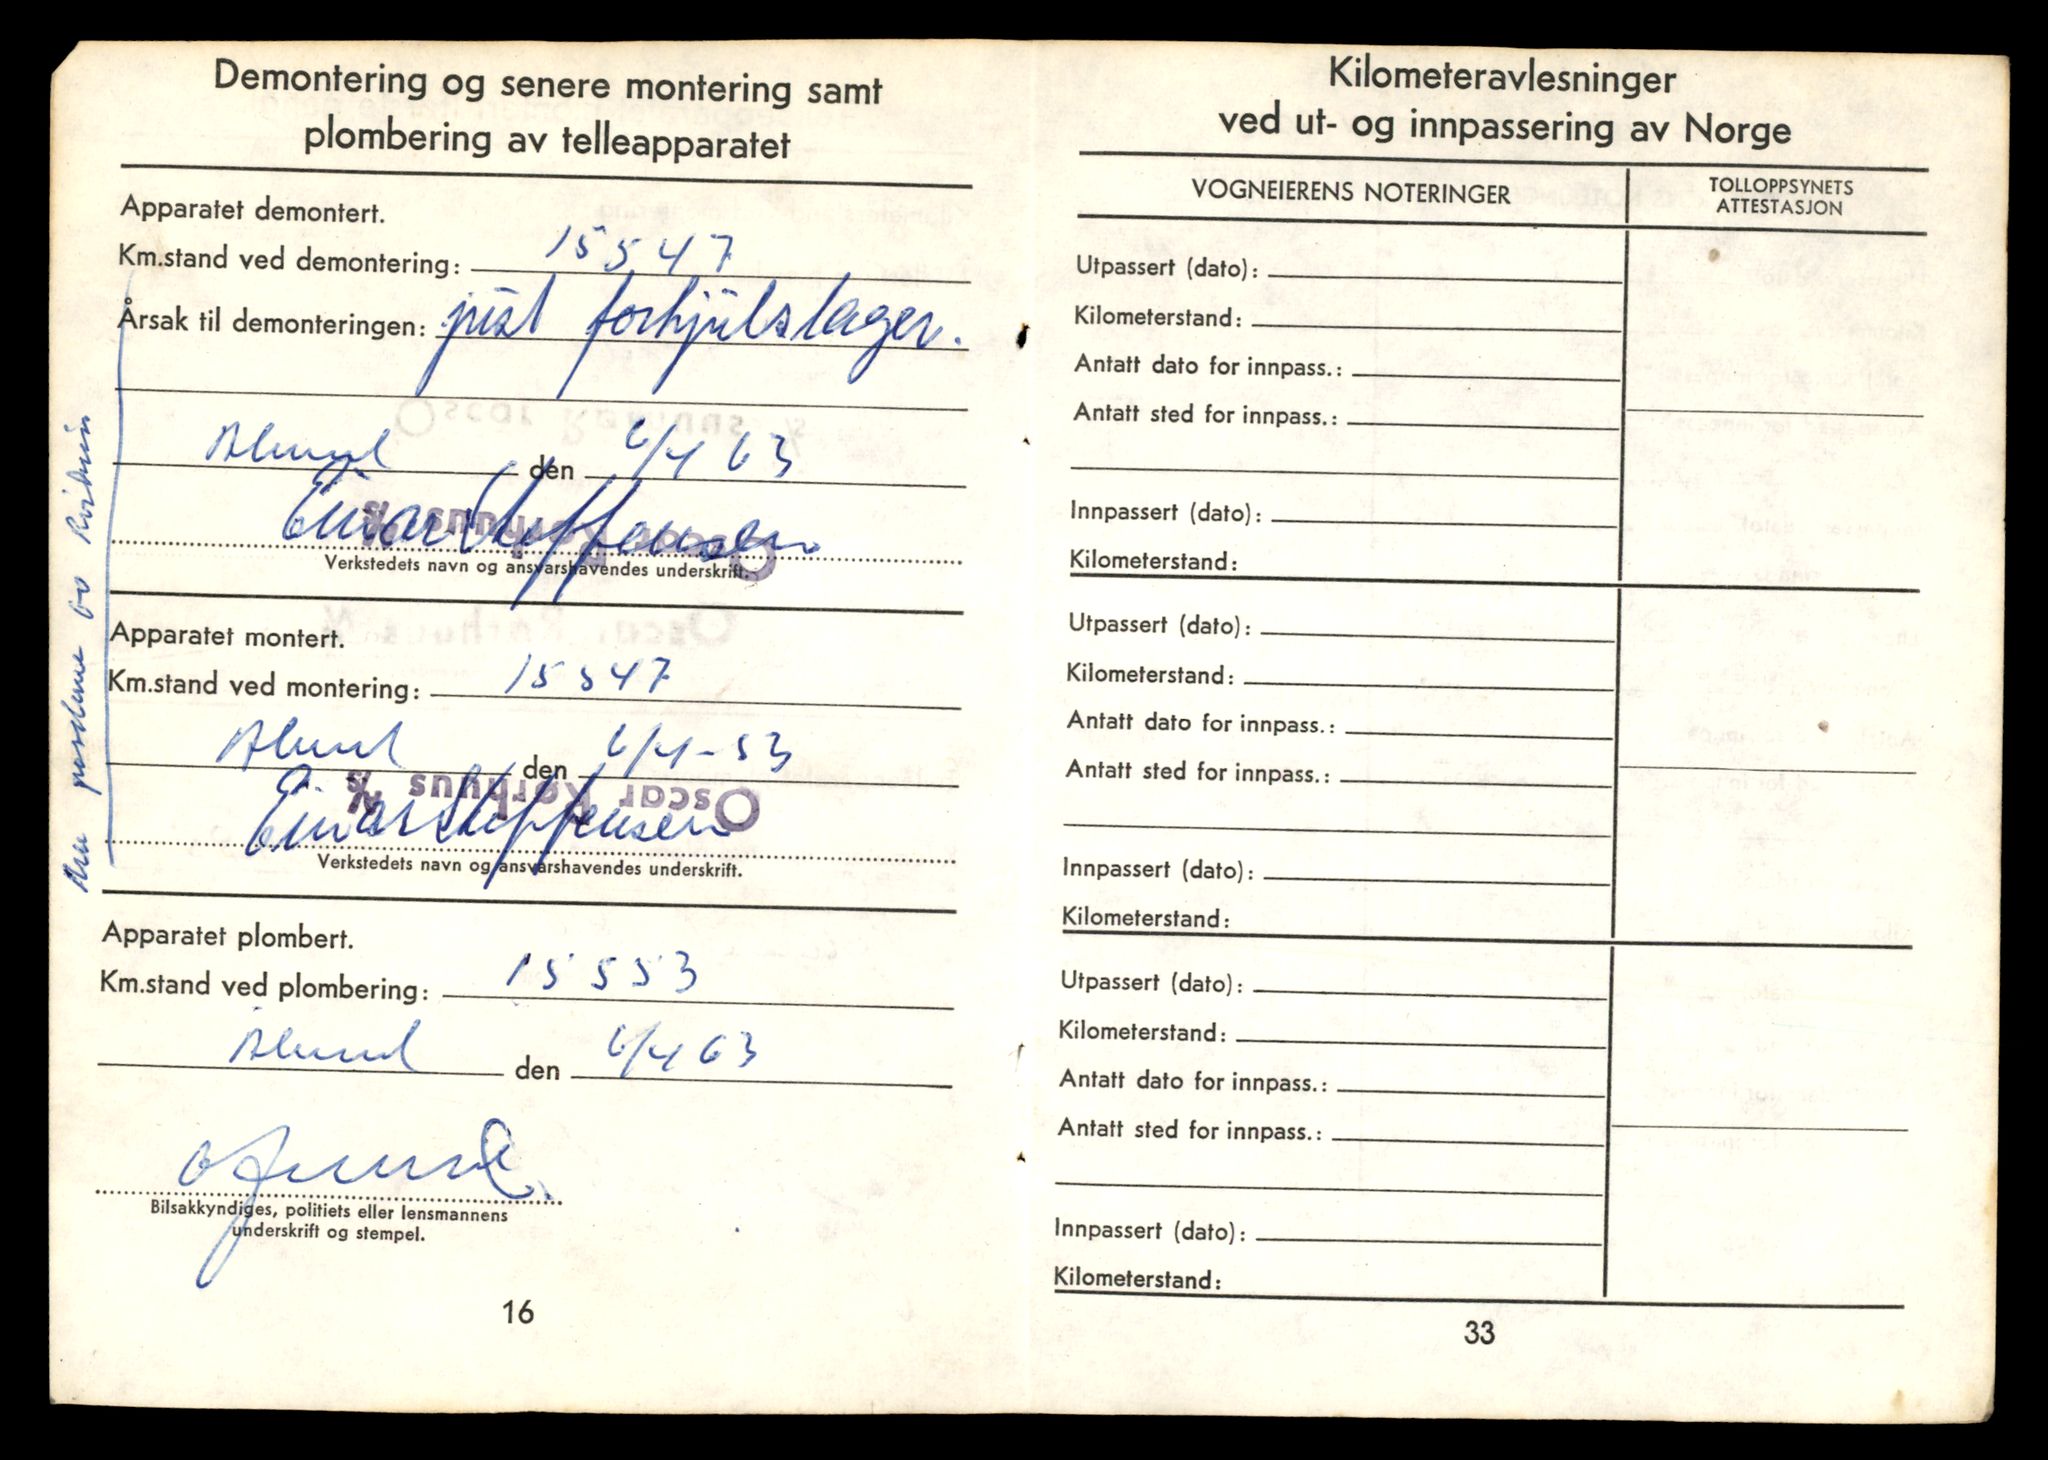 Demontering og senere montering samt
plombering av telleapparatet
Apparatet demontert.
Km.stand ved demontering: 15547
Årsak til demonteringen: just forhjulslager.
den 6/4 63
Einar Steffensen
Oscar Rørhuus A/S
Verkstedets navn og ansvarshavendes underskrift.
Apparatet montert.
Km.stand ved montering: 15547
den 6/4-53
Oscar Rørhuus A/S
Einar Steffensen
Verkstedets navn og ansvarshavendes underskrift.
Apparatet plombert.
Km.stand ved plombering: 15553
den 6/4 63
Bilsakkyndiges, politiets eller lensmannens
underskrift og stempel.
16
Kilometeravlesninger
ved ut- og innpassering av Norge
VOGNEIERENS NOTERINGER
TOLLOPPSYNETS
ATTESTASJON
Utpassert (dato):
Kilometerstand:
Antatt dato for innpass.:
Antatt sted for innpass.:
Innpassert (dato):
Kilometerstand:
Utpassert (dato):
Kilometerstand:
Antatt dato for innpass.:
Antatt sted for innpass.:
Innpassert (dato):
Kilometerstand:
Utpassert (dato):
Kilometerstand:
Antatt dato for innpass.:
Antatt sted for innpass.:
Innpassert (dato):
Kilometerstand:
33